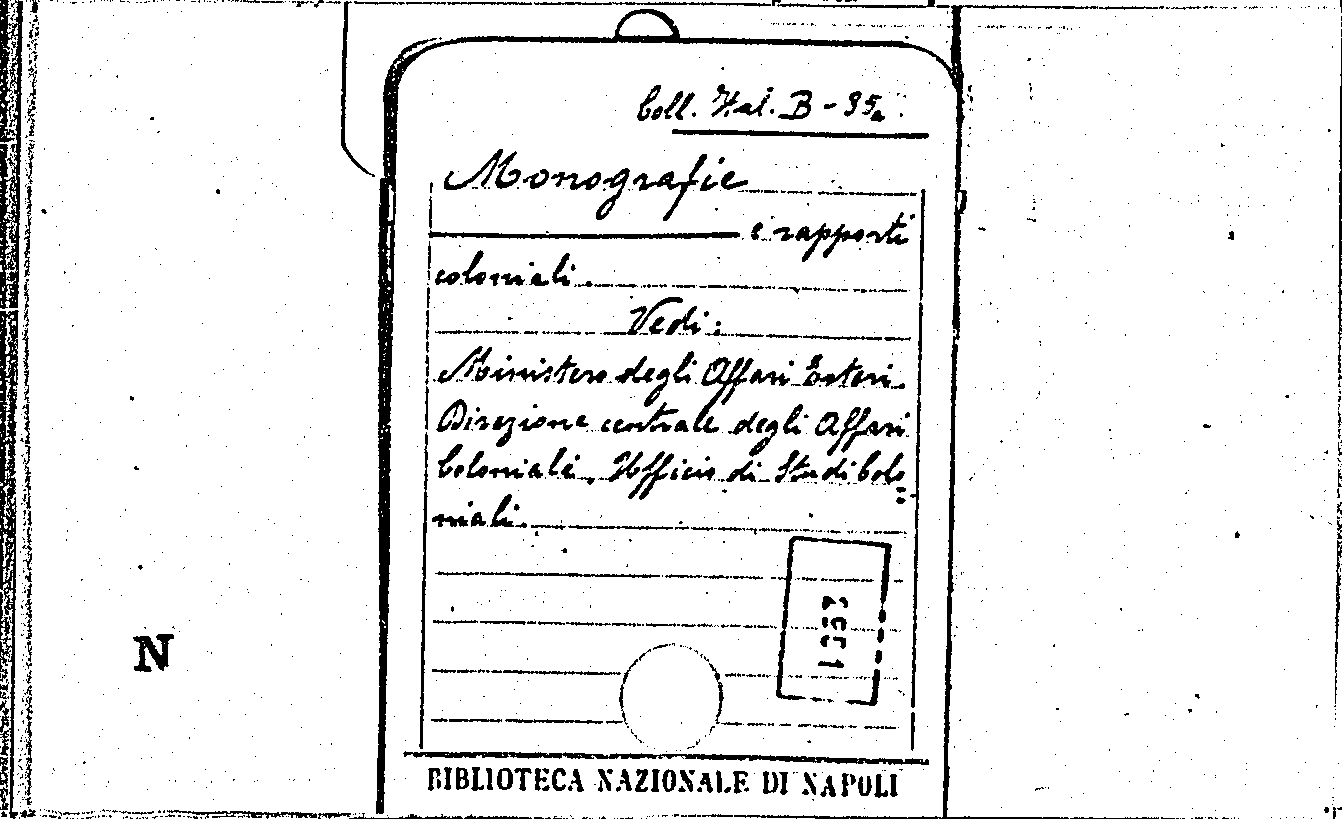 Coll. Ital. B - 95a.
Monografie
e rapporti
coloniali.
Vedi:
Ministero degli Affari Esteri.
Direzione centrale degli Affari
Coloniali. Ufficio di Studi Colo
=
niali.
N
BIBLIOTECA NAZIONALE DI NAPOLI